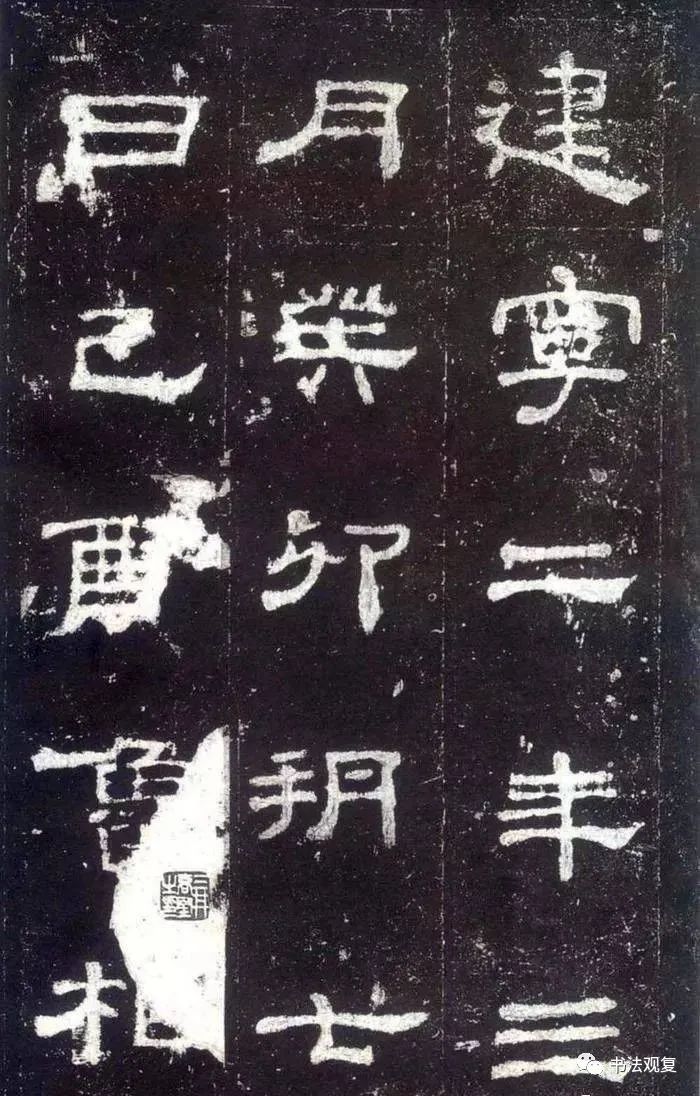 建寧二年三
月癸卯朔七
日己酉魯相
书法观复